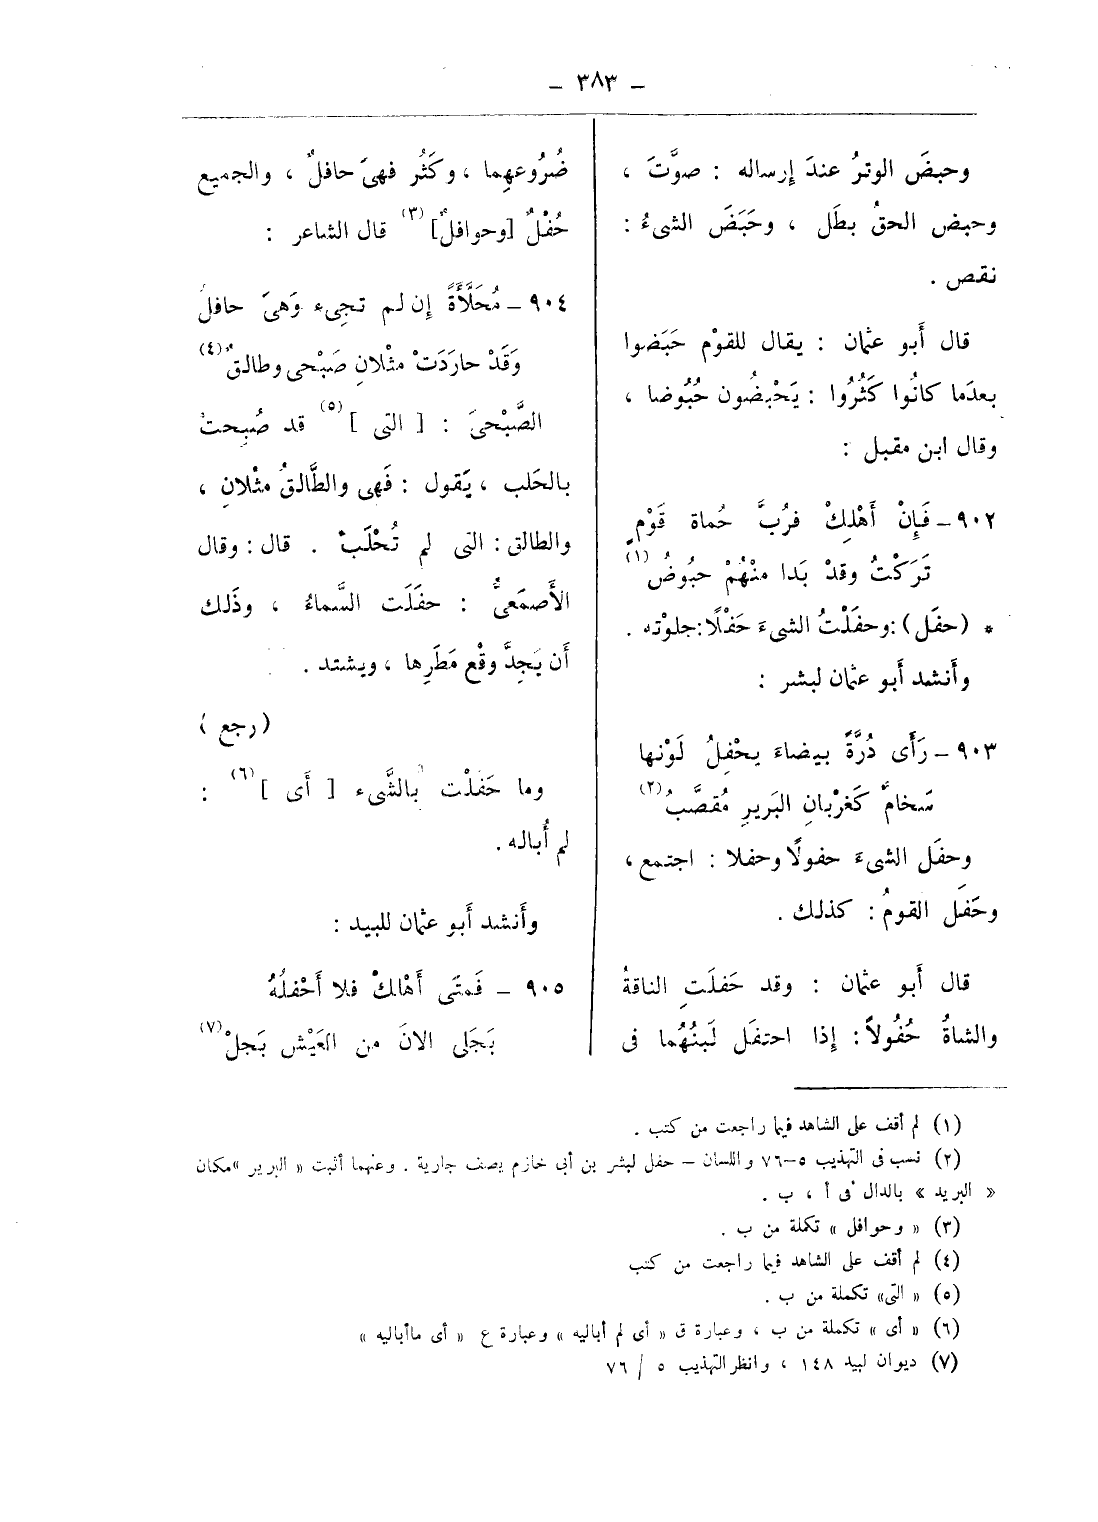 – ٣٨٣ –
وحبضَ الوترُ عندَ إرساله : صوَّتَ ،
وحبض الحقُ بطَل ، وحَبَضَ الشىءُ :
نقص .
قال أَبو عثمان : يقال للقوْم حَبَضوا
بعدَما كانُوا كَثُرُوا : يَحْبِضُون حُبُوضا ،
وقال ابن مقبل :
٩٠٢ – فَإِنْ أَهْلِكْ فرُبَّ حُماة قَوْمٍ
تَرَكْتُ وقدْ بَدا منْهُمْ حبُوضُ (١)
* (حفَل) : وحفَلْتُ الشىءَ حَفْلًا : جلوْته .
وأَنشد أَبو عثمان لبشر :
٩٠٣ – رَأَى دُرَّةً بيضاءَ يحْفِلُ لَوْنها
سَخامٌ كَغرْبانِ البَريرِ مُقصَّبُ (٢)
وحفَل الشىءَ حفولًا وحفلا : اجتمع ،
وحَفَل القومُ : كذلك .
قال أَبو عثمان : وقد حَفلَتِ الناقةُ
والشاةُ حُفُولاً : إذا احتفَل لَبنُهُما فى
ضُرُوعهِما ، وكَثُر فهىَ حافلٌ ، والجميع
حُفْلٌ [وحوافلٌ] (٣) قال الشاعر :
٩٠٤ – مُحَلَّأَةً إِن لم تجىء وَهىَ حافلُ
وَقَدْ حارَدَتْ مثْلانِ صَبْحى وطالقُ (٤)
الصَّبْحىَ : [ التى ] (٥) قد صُبِحتْ
بالحَلب ، يَقول : فَهى والطَّالقُ مثْلانِ ،
والطالق : التى لم تُحْلَبْ . قال : وقال
الأَصمَعىُّ : حفَلَت السَّماءُ ، وذَلك
أَن يَجِدَّ وقْع مَطَرِها ، ويشتد .
(رجع)
وما حَفَلْت بالشَّىء [ أَى ] (٦) :
لم أُباله .
وأَنشد أَبو عثمان للبيد :
٩٠٥ – فَمتَى أَهْلكْ فلا أَحْفلُهُ
بَجَلى الانَ من العَيْش بَجلْ (٧)
(١) لم أقف على الشاهد فيما راجعت من كتب .
(٢) نسب فى التهذيب ٥–٧٦ واللسان – حفل لبشر بن أبى خازم يصف جارية . وعنهما أثبت « البرير » مكان
« البريد » بالدال فى أ ، ب .
(٣) « وحوافل » تكملة من ب .
(٤) لم أقف على الشاهد فيما راجعت من كتب
(٥) « التى » تكملة من ب .
(٦) « أى » تكملة من ب ، وعبارة ق « أى لم أباليه » وعبارة ع « أى ماأباليه »
(٧) ديوان لبيد ١٤٨ ، وانظر التهذيب ٥ / ٧٦